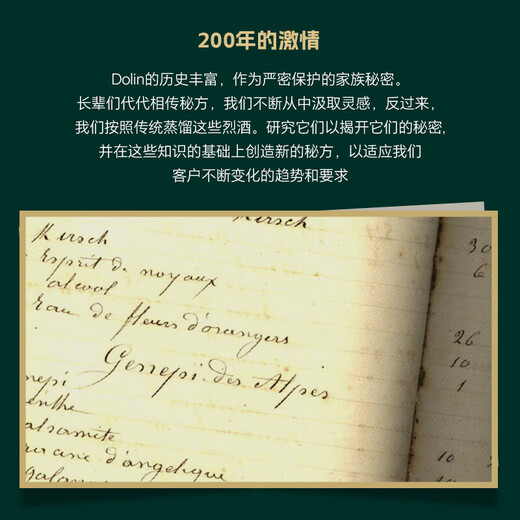 200年的激情
Dolin的历史丰富，作为严密保护的家族秘密。
长辈们代代相传秘方，我们不断从中汲取灵感，反过来，
我们按照传统蒸馏这些烈酒。研究它们以揭开它们的秘密，
并在这些知识的基础上创造新的秘方，以适应我们
客户不断变化的趋势和要求
Kirsch
Kirsch
30
Esprit de noyaux
6
alcool
Eau de fleurs d'orangers
26
Genepi des Alpes
10
nepi
1
enthe
alsamite
cine d'angelique
10
10
galan